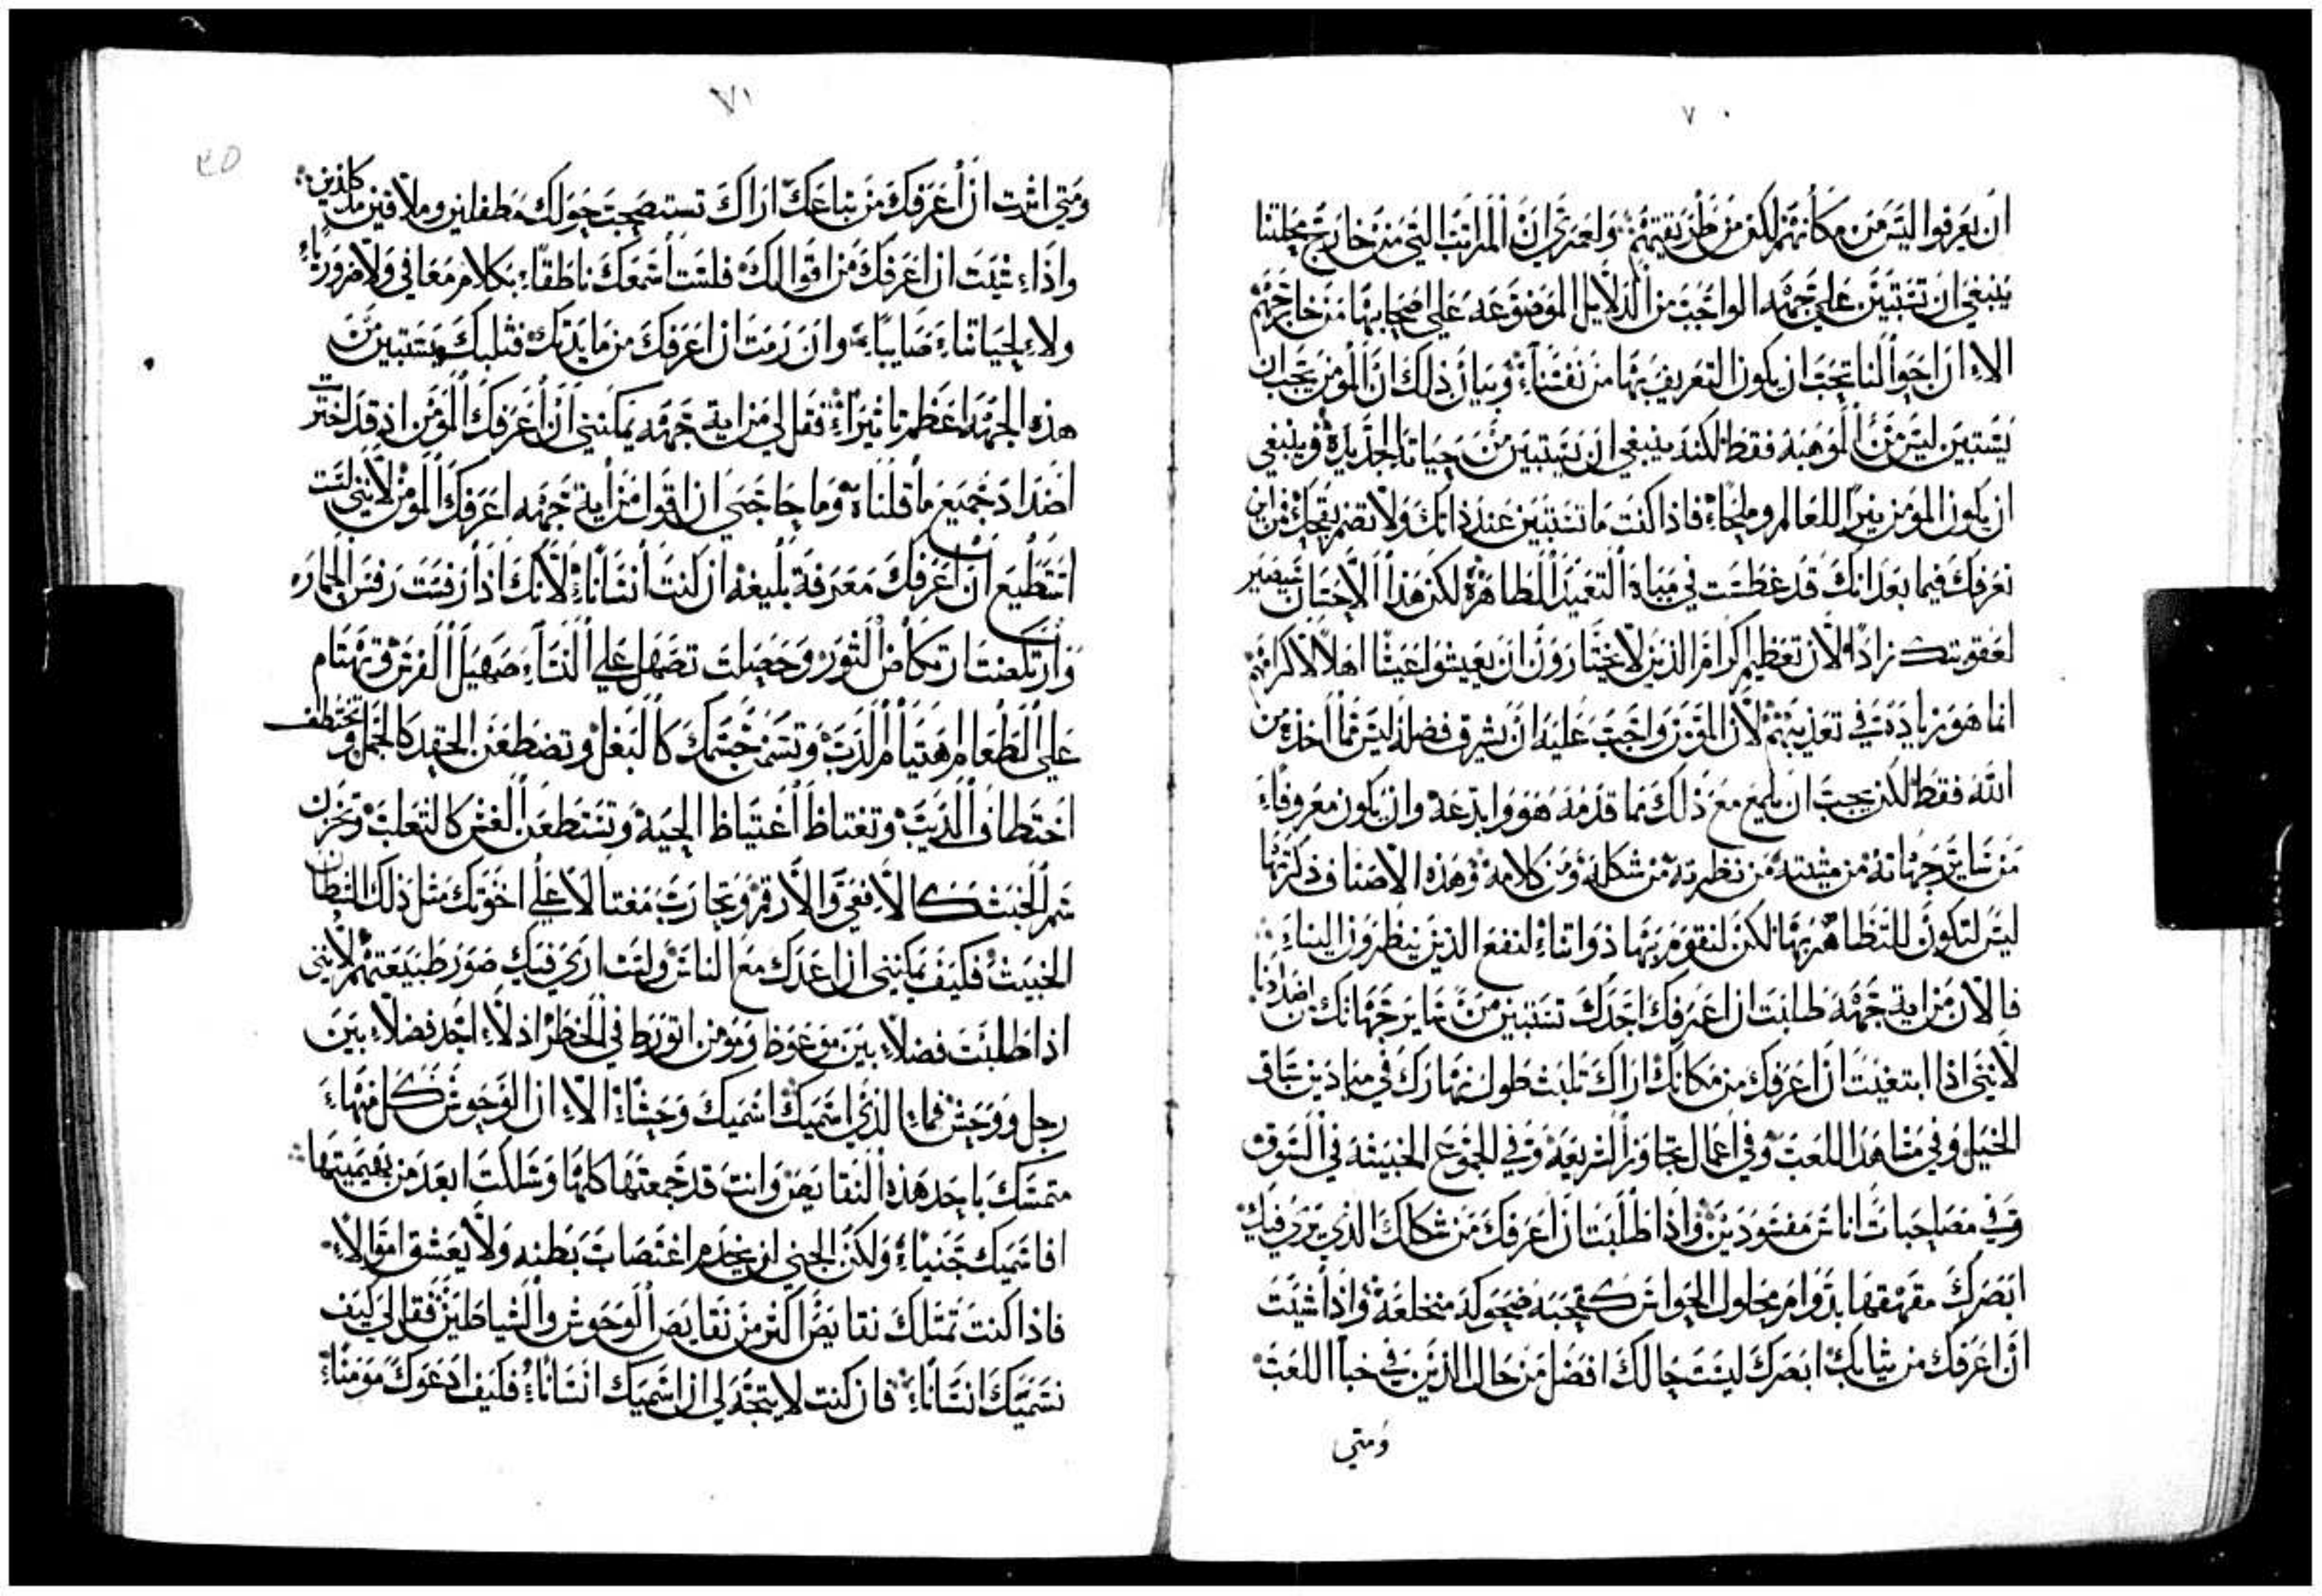 ٧٠
ان يعرفوا ليس من مكانهم لكن من طريقتهم ولعمري ان المراتب التي من خارج محلتنا
ينبغي ان تستبين علي جهه الواجب من الدلايل الموضوعه علي اصحابها من خارجهم
الا ان احوالنا تجب ان يكون التعريف بها من نفسنا وبيان ذلك ان المومن يجب ان
يستبين ليس من الموهبه فقط لكنه ينبغي ان يستبين من حياته الجديدة وينبغي
ان يكون المومن نيرا للعالم وملحا فاذا كنت ما تستبين عند ذاتك ولا تضم بقيحك من اين
نعرفك فيما بعد انك قد غطست في مياة التعميد الطاهرة لكن هذا الاحسان سيصير
لعقوبتك زادا لان تعظيم اكرام الذين لا يختارون ان يعيشوا عيشا اهلا لاكرامهم
انما هو زيادة في تعذيبهم لان المومن واجب عليه ان يشرق فضله ليس مما اخذه من
الله فقط لكن يجب ان يلمع مع ذلك مما قدمه هو وابدعه وان يكون معروفا
من ساير جهاته من مشيته من نظرته من شكله ومن كلامه وهذه الاصناف ذكرتها
ليس لتكون للتظاهر بها لكن لنقوم بها ذواتنا لنفع الذين ينظرون الينا
فالان من اية جهه طلبت ان اعرفك اجدك تستبين من ساير جهاتك اضدادها
لانني اذا ابتغيت ان اعرفك من مكانك اراك تلبث طول نهارك في ميادين سباق
الخيل وفي مشاهد اللعب وفي اعمال تجاوز الشريعه وفي الجموع الخبيثه في السوق
وفي مصاحبات اناس مفسودين واذا طلبت ان اعرفك من شكلك الذي يري فيك
ابصرك مقهقها بدوام محلول الحواس كقحبه ضحوكه منخلعة واذا شيت
ان اعرفك من ثيابك ابصرك ليست حالك افضل من حال الذين في خبا اللعب
ومتي
٧١
ومتي اثرت ان اعرفك من تباعك اراك تستصحب حولك مطفلين وملاقين كاذبين
واذا شيت ان اعرفك من اقوالك فلست اسمعك ناطقا بكلام معافي ولا ضروريا
ولا لحياتنا صايبا وان رمت ان اعرفك من مايدتك فثلبك يستبين من
هذه الجهه اعظم تاثيرا فقل لي من اية جهه يمكنني ان اعرفك المومن اذ قد اخترت
اضداد جميع ما قلناه وما حاجتي ان اقول من اية جهه اعرفك المومن لانني لست
استطيع ان اعرفك معرفة بليغه ان كنت انسانا لانك اذا رفست رفس الحماره
وارتكضت ارتكاض الثور وحصلت تصهل علي النسا صهيل الفرس وتهتام
علي الطعام اهتيام الدب وتسمن جسمك كالبغل وتضطغن الحقد كالجمل وتختطف
اختطاف الديب وتغتاظ اغتياظ الحية وتستطعن الغش كالثعلب وتخزن
سم الخبث كالافعي والارقم وتحارب مغتالا علي اخوتك مثل ذلك الشيطان
الخبيث فكيف يمكنني ان اعدك مع الناس ولست اري فيك صور طبيعتهم لانني
اذا طلبت فضلا بين موعوظ ومومن اتورط في الخطر اذ لا اجد فضلا بين
رجل ووحش فما الذي اسميك اسميك وحشا الا ان الوحوش كل منها
متمسك باحد هذه النقايص وانت قد جمعتها كلها وسلكت ابعد من بهيميتها
افاسميك جنيا ولكن الجني لن يخدم اغتصاب بطنه ولا يعشق اموالا
فاذا كنت تمتلك نقايص اكثر من نقايص الوحوش والشياطين فقل لي كيف
نسميك انسانا فان كنت لا يتجه لي ان اسميك انسانا فكيف ادعوك مومنا